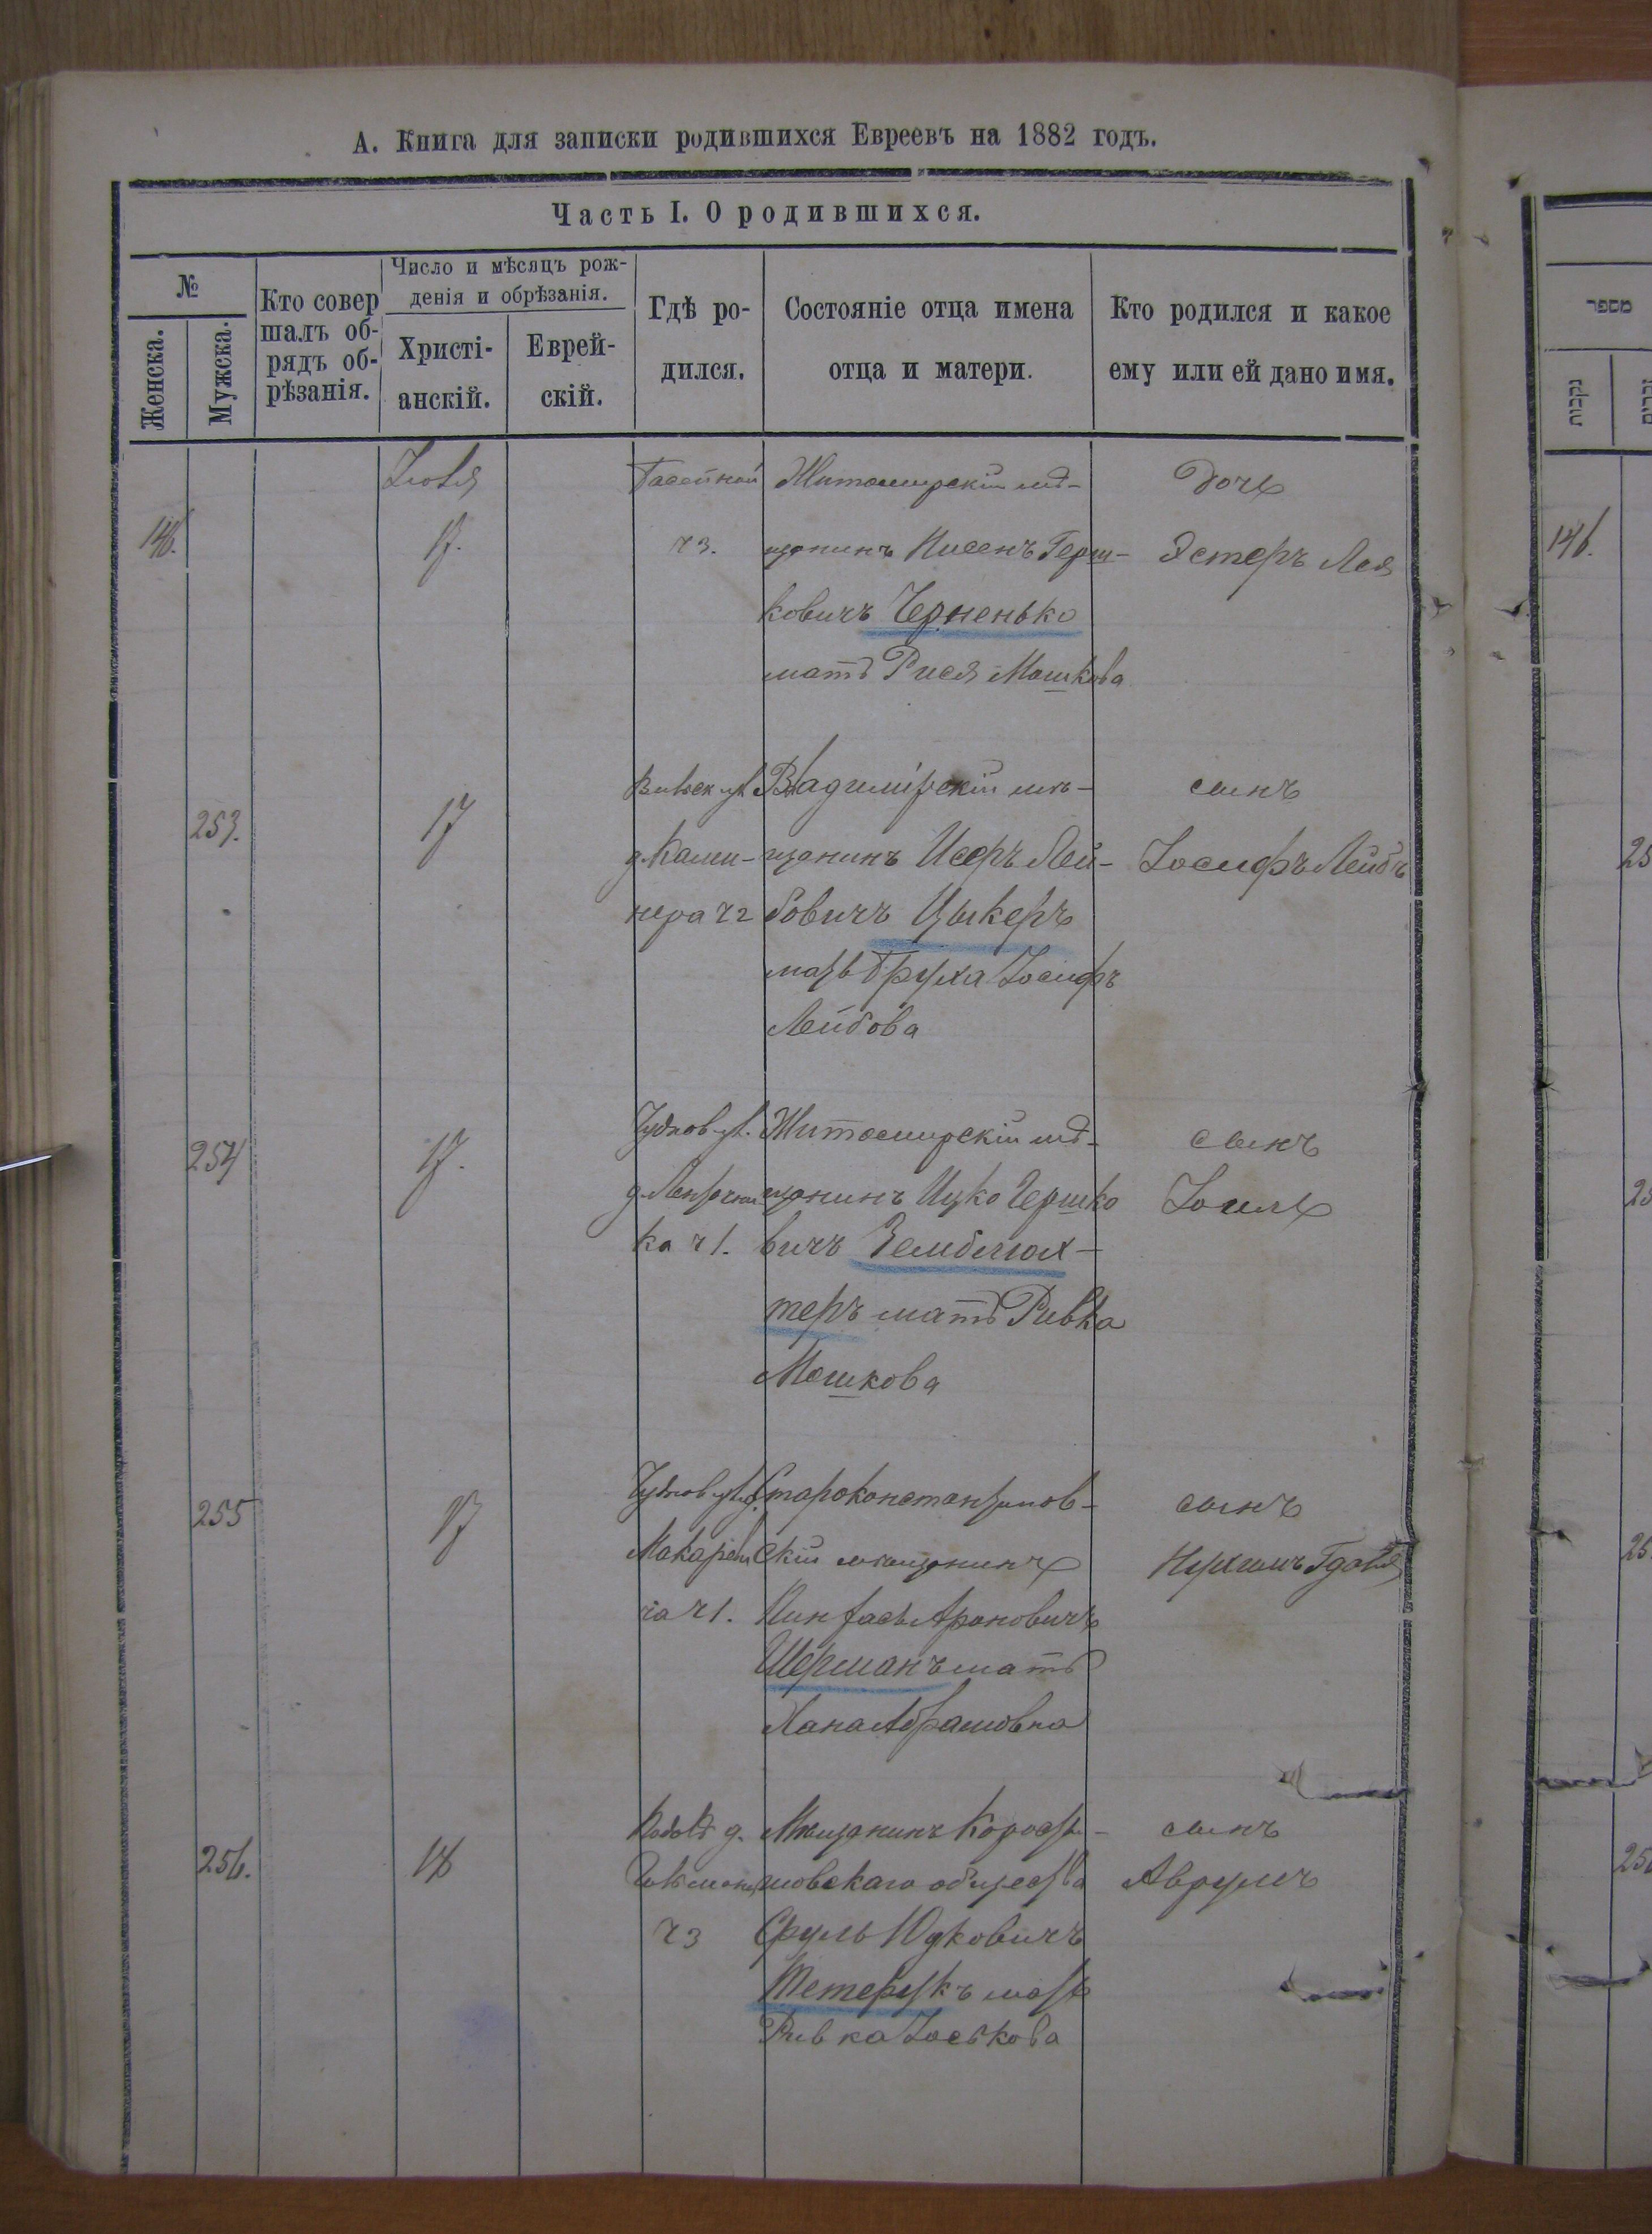 А. Книга для записки родившихся Евреевъ на 1882 годъ.
Часть I. О родившихся.
№
Женска.
Мужска.
Кто совер
шалъ об-
рядъ об-
рѣзанія.
Число и мѣсяцъ рож-
денія и обрѣзанія.
Христі-
анскій.
Еврей-
скій.
Гдѣ ро-
дился.
Состояніе отца имена
отца и матери.
Кто родился и какое
ему или ей дано имя.
146.
Іюля
17.
ч3.
Житомирскій мѣ-
щанинъ Нисенъ Герш-
ковичъ Черненько
мать Рися Мошкова
Дочь
Эстеръ Лея
253.
17
д. Ками-
нера ч2
Владимірскій мѣ-
щанинъ Исеръ Лей-
бовичъ Цыкеръ
мать Бруха Іосифъ
Лейбова
сынъ
Іосифъ Лейбъ
254
17.
Чуднов ул.
ка ч1.
Житомирскій мѣ-
щанинъ Ицко Гершко
вичъ Зембліах-
теръ мать Ривка
Мошкова
сынъ
Іоиль
255
17
Чуднов ул. д.
Макареви
ча ч1.
Староконстантинов-
скій мѣщанинъ
Пинхасъ Ароновичъ
Шерманъ мать
Хана Абрамовна
сынъ
Нухимъ Гдаля
256.
18
ч3
Мѣщанинъ Корости-
шовскаго общества
Сруль Юдковичъ
Тетерукъ мать
Ривка Іоськова
сынъ
Аврумъ
מספר
נקבות
146.
25
25
25